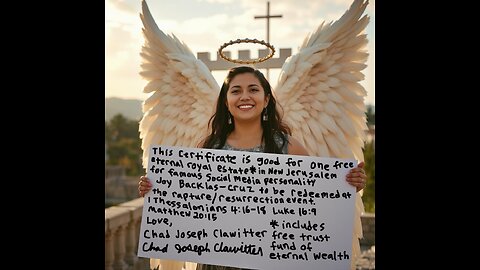 This Certificate is good for one free
eternal royal estate* in New Jerusalem
for famous Social Media personality
Joy Backlas-Cruz to be redeemed at
the rapture/resurrection event.
1 Thessalonians 4:16-18 Luke 16:9
Matthew 20:15
Love,
Chad Joseph Clawitter
Chad Joseph Clawitter
* includes
free trust
fund of
eternal wealth